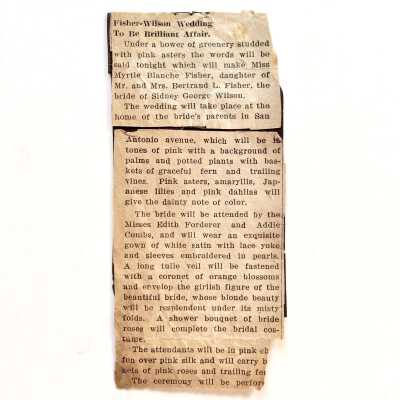 Fisher-Wilson Wedding
To Be Brilliant Affair.
Under a bower of greenery studded
with pink asters the words will be
said tonight which will make Miss
Myrtle Blanche Fisher, daughter of
Mr. and Mrs. Bertrand L. Fisher, the
bride of Sidney George Wilson.
The wedding will take place at the
home of the bride's parents in San
Antonio avenue, which will be in
tones of pink with a background of
palms and potted plants with bas-
kets of graceful fern and trailing
vines. Pink asters, amaryllis, Jap-
anese lilies and pink dahlias will
give the dainty note of color.
The bride will be attended by the
Misses Edith Forderer and Addie
Combs, and will wear an exquisite
gown of white satin with lace yoke
and sleeves embroidered in pearls.
A long tulle veil will be fastened
with a coronet of orange blossoms
and envelop the girlish figure of the
beautiful bride, whose blonde beauty
will be resplendent under its misty
folds. A shower bouquet of bride
roses will complete the bridal cos-
tume.
The attendants will be in pink
fon over pink silk and will carry
kets of pink roses and trailing
The ceremony will be